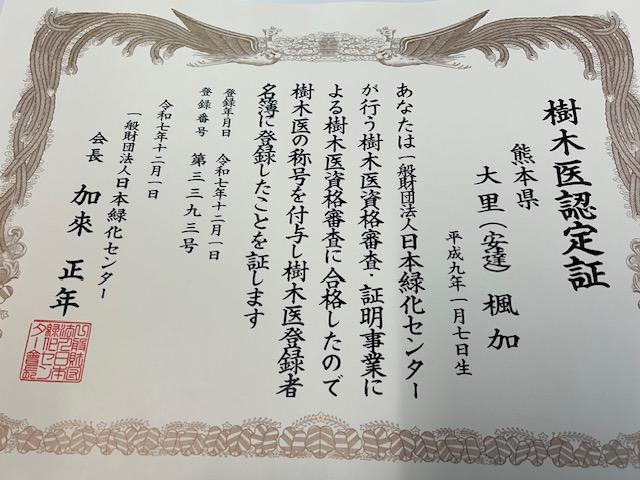 樹木医認定証
熊本県
大里(安達) 楓加
平成九年一月七日生
あなたは一般財団法人日本緑化センター
が行う樹木医資格審査・証明事業に
よる樹木医資格審査に合格したので
樹木医の称号を付与し樹木医登録者
名簿に登録したことを証します
登録年月日 令和七年十二月一日
登録番号 第三三九三号
令和七年十二月一日
一般財団法人日本緑化センター
会長 加来 正年